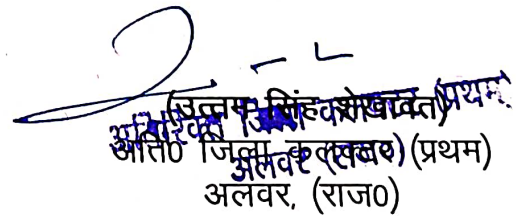 (उत्तम सिंह शेखावत)
अति० जिला कलक्टर (प्रथम)
अलवर, (राज०)
अतिरिक्त जिला कलक्टर प्रथम
अलवर (राज०)